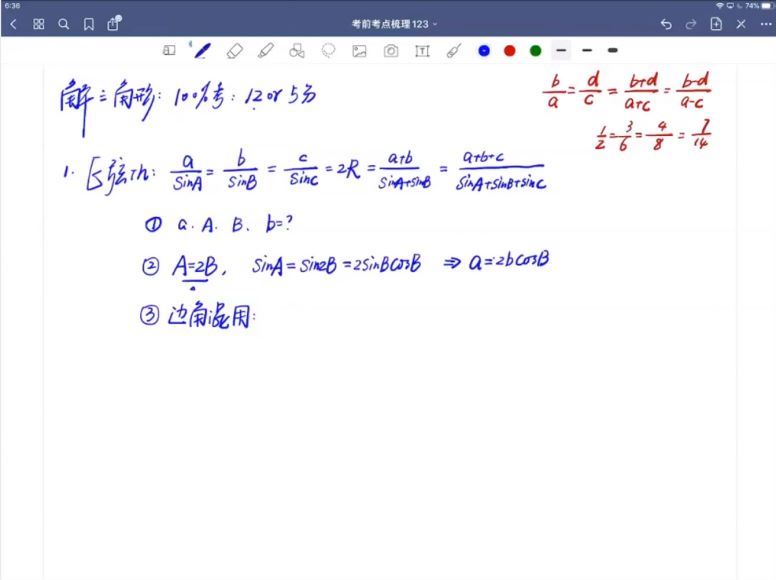 6:36
74%
考前考点梳理123
解三角形: 100%考: 12 or 5分
b/a = d/c = (b+d)/(a+c) = (b-d)/(a-c)
1/2 = 3/6 = 4/8 = 7/14
1. 正弦Th: a/sinA = b/sinB = c/sinC = 2R = (a+b)/(sinA+sinB) = (a+b+c)/(sinA+sinB+sinC)
① a. A. B. b=?
② A=2B, sinA=sin2B=2sinBcosB ⇒ a=2bcosB
③ 边角混用: